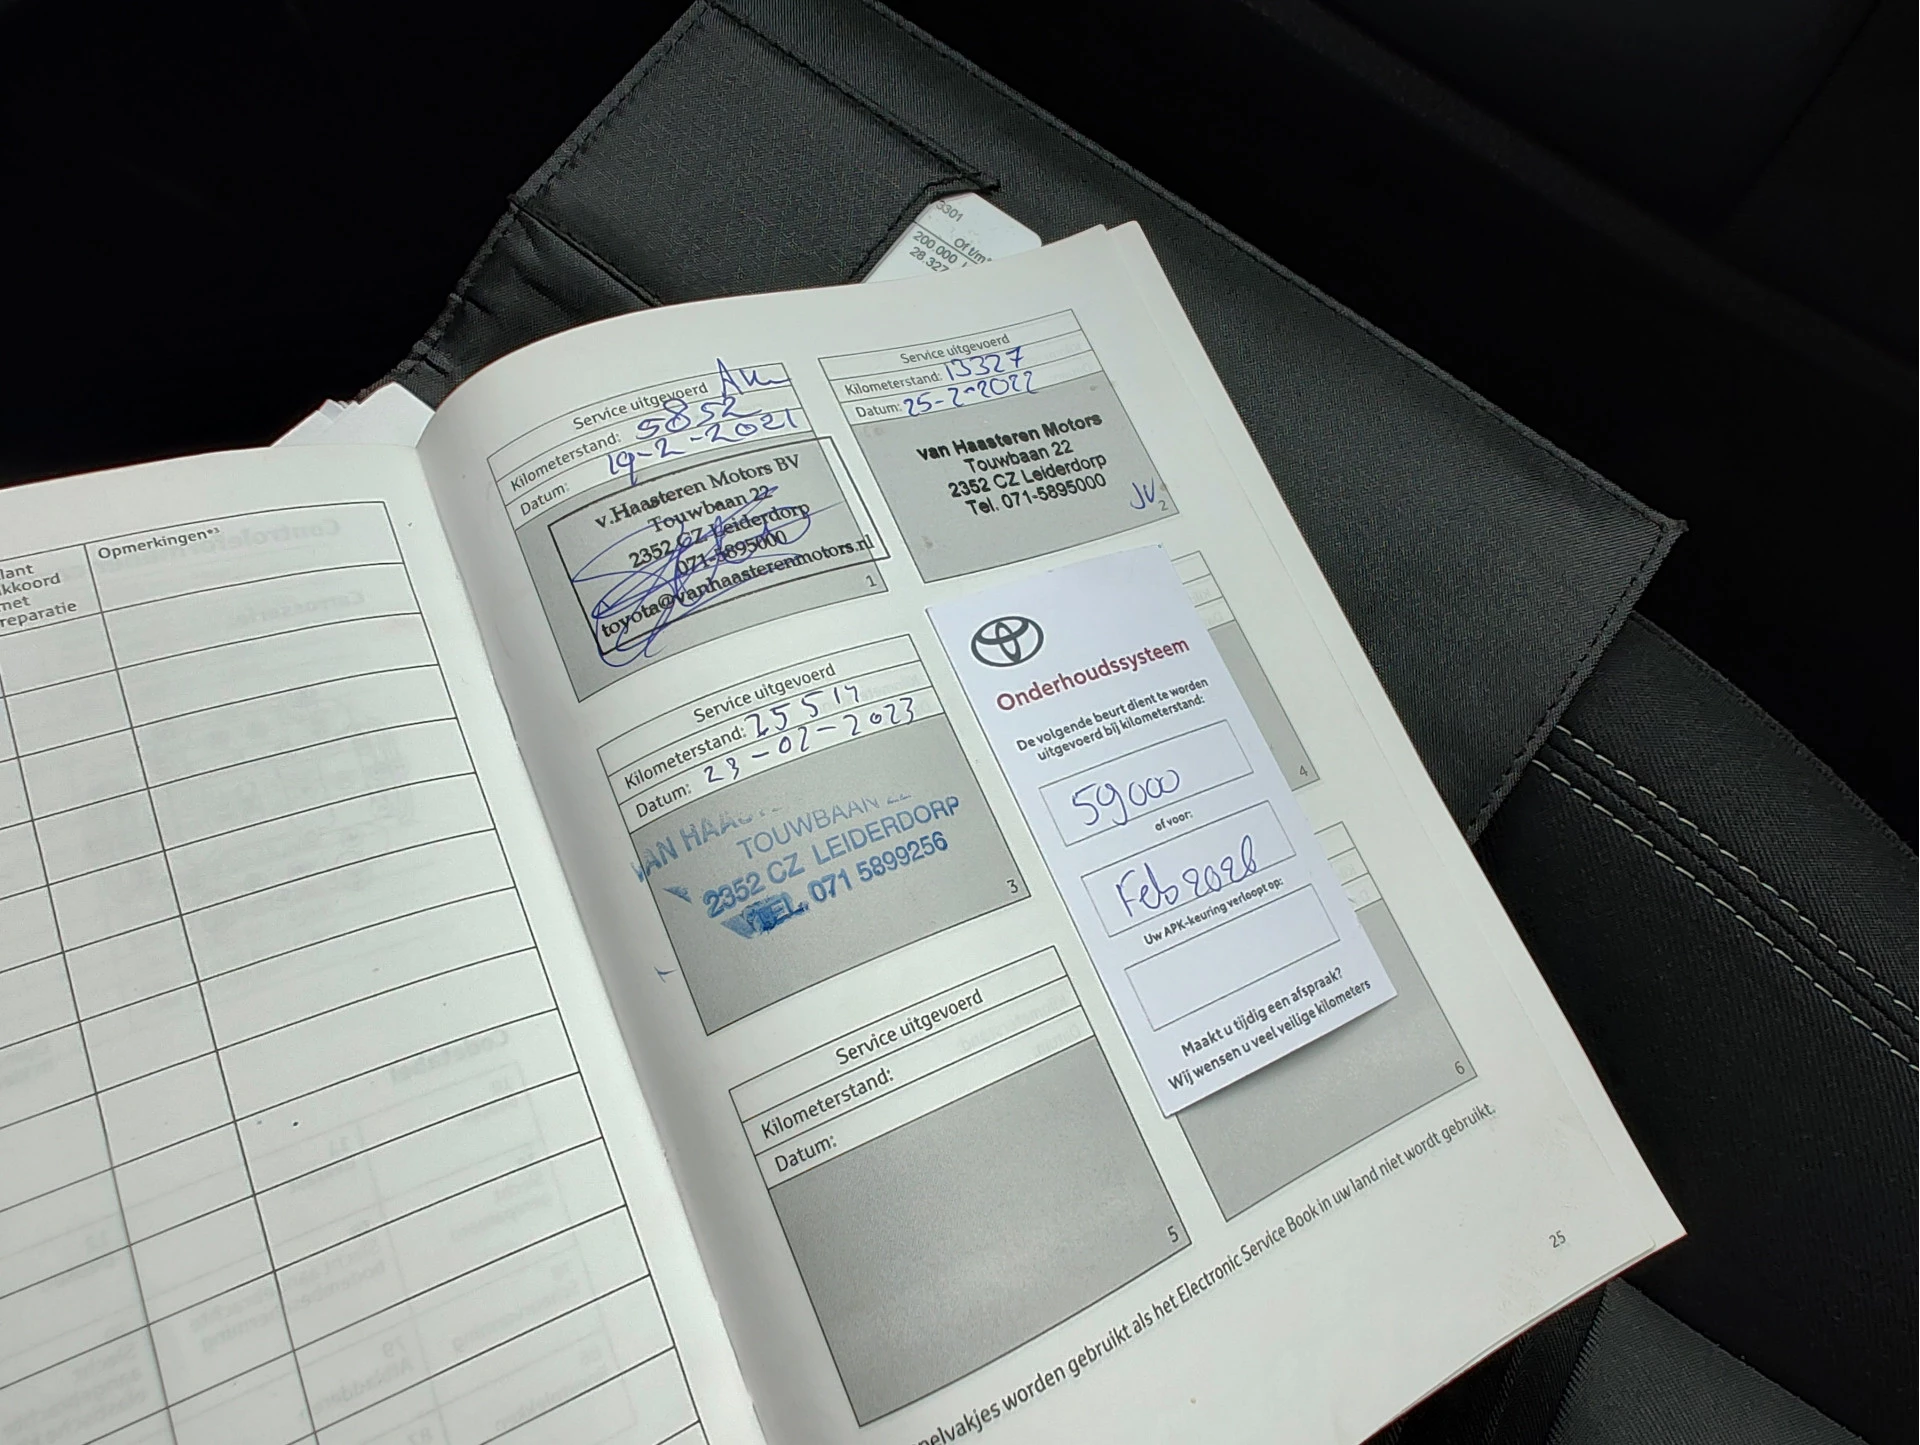 3301
Of t/m
200.000
28.327
lant
kkoord
met
reparatie
Opmerkingen*³
Service uitgevoerd
Kilometerstand: 5852
Datum: 19-2-2021
v.Haasteren Motors BV
Touwbaan 22
2352 CZ Leiderdorp
071-5895000
toyota@vanhaasterenmotors.nl
1
Service uitgevoerd
Kilometerstand: 13327
Datum: 25-2-2022
van Haasteren Motors
Touwbaan 22
2352 CZ Leiderdorp
Tel. 071-5895000
JV
2
Service uitgevoerd
Kilometerstand: 25517
Datum: 23-02-2023
TOUWBAAN 22
2352 CZ LEIDERDORP
TEL. 071 5899256
3
4
Onderhoudssysteem
De volgende beurt dient te worden
uitgevoerd bij kilometerstand:
59000
of voor:
Feb 2026
Uw APK-keuring verloopt op:
Maakt u tijdig een afspraak?
Wij wensen u veel veilige kilometers
Service uitgevoerd
Kilometerstand:
Datum:
5
6
pelvakjes worden gebruikt als het Electronic Service Book in uw land niet wordt gebruikt.
25